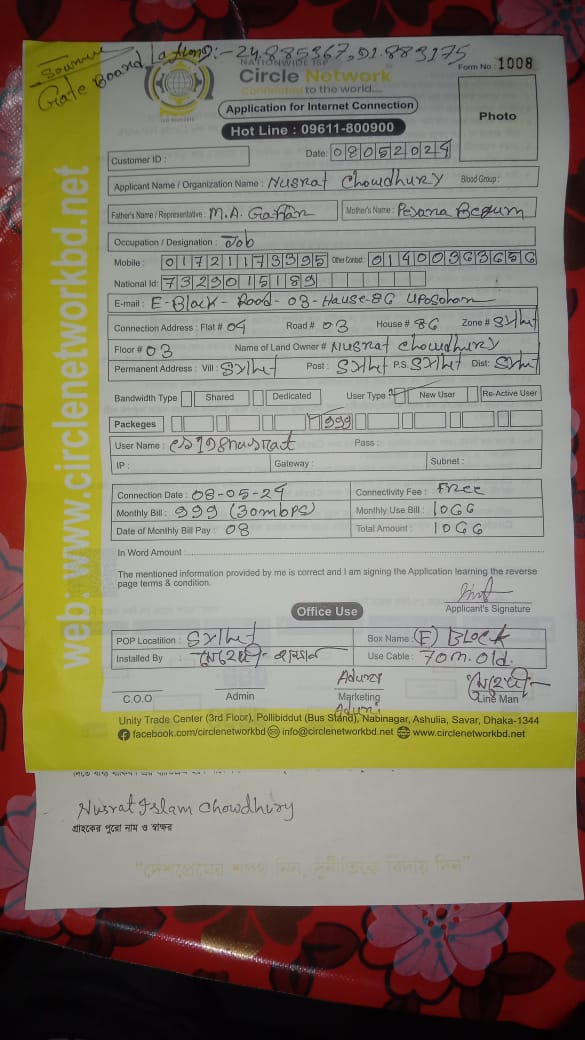 Gate Board Lationg:- 24.885367, 91.883175
NATIONWIDE ISP
Form No : 1008
Circle Network
Connected to the world....
Application for Internet Connection
Photo
Hot Line : 09611-800900
Customer ID :
Date: 08052024
Applicant Name / Organization Name : Nusrat Chowdhury Blood Group :
Father's Name / Representative : M.A. Mother's Name : Begum
Occupation / Designation : Job
Mobile : 01721173395 Other Contact : 01400363656
National Id : 7329015189
E-mail : E-Block - Rood - 03 - Hause-86 Uposohom
Connection Address : Flat # 04 Road # 03 House # 86 Zone # Sylhet
Floor # 03 Name of Land Owner # Nusrat Chowdhury
Permanent Address : Vill : Sylhet Post : Sylhet P.S. Sylhet Dist: Sylhet
Bandwidth Type Shared Dedicated User Type : New User Re-Active User
Packeges 999
User Name : cs198nusrat Pass :
IP : Gateway : Subnet :
Connection Date : 08-05-24 Connectivity Fee : Free
Monthly Bill : 999 (30mbps) Monthly Use Bill : 1066
Date of Monthly Bill Pay : 08 Total Amount : 1066
In Word Amount :
The mentioned information provided by me is correct and I am signing the Application learning the reverse
page terms & condition.
Applicant's Signature
Office Use
POP Locatition : Sylhet Box Name : (F) Block
Installed By : Use Cable : 70m. old.
C.O.O Admin Marketing Line Man
Unity Trade Center (3rd Floor), Pollibiddut (Bus Stand), Nabinagar, Ashulia, Savar, Dhaka-1344
facebook.com/circlenetworkbd info@circlenetworkbd.net www.circlenetworkbd.net
web: www.circlenetworkbd.net
Nusrat Islam Chowdhury
গ্রাহকের পুরো নাম ও স্বাক্ষর
"দেশপ্রেমের শপথ নিন, দুর্নীতিকে বিদায় দিন"